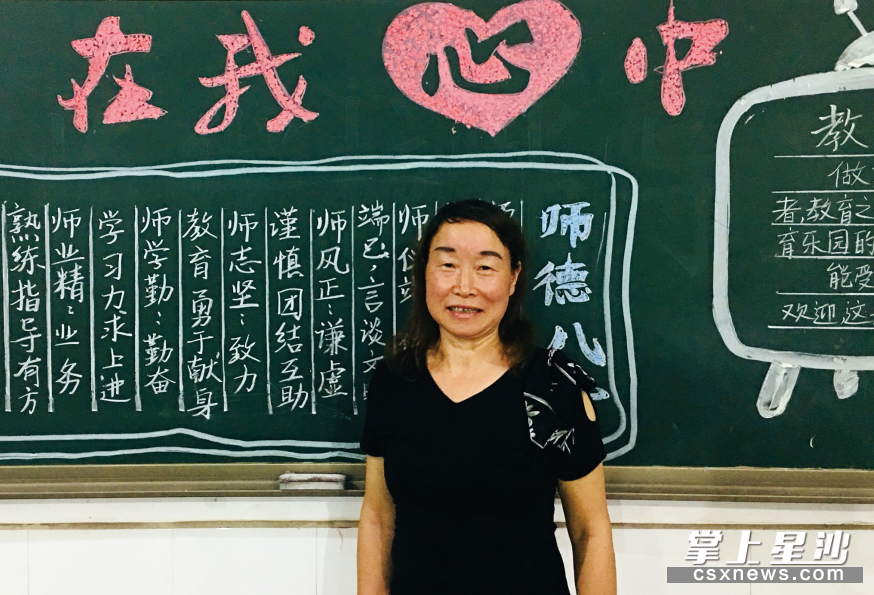 在我心中
师德八
师
师仪
端己：言谈文
师风正：谦虚
谨慎团结互助
师志坚：致力
教育勇于献身
师学勤：勤奋
学习力求上进
师业精：业务
熟练指导有方
教
做
者,教育之
育乐园的
能受
欢迎这
掌上星沙
csxnews.com